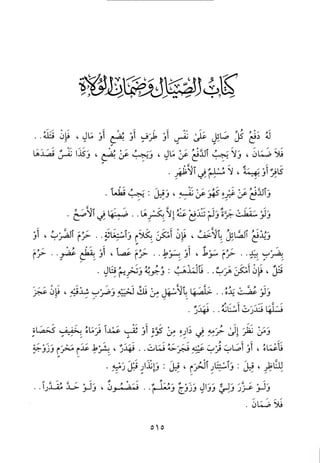 كِتَابُ الصِّيَالِ وَضَمَانِ الْوُلَاةِ
لَهُ دَفْعُ كُلِّ صَائِلٍ عَلَىٰ نَفْسٍ أَوْ طَرَفٍ أَوْ بُضْعٍ أَوْ مَالٍ ، فَإِنْ قَتَلَهُ . .
فَلَا ضَمَانَ ، وَلَا يَجِبُ ٱلدَّفْعُ عَنْ مَالٍ ، وَيَجِبُ عَنْ بُضْعٍ ، وَكَذَا نَفْسٌ قَصَدَهَا
كَافِرٌ أَوْ بَهِيمَةٌ ، لَا مُسْلِمٌ فِي ٱلأَظْهَرِ .
وَٱلدَّفْعُ عَنْ غَيْرِهِ كَهُوَ عَنْ نَفْسِهِ ، وَقِيلَ : يَجِبُ قَطْعاً .
وَلَوْ سَقَطَتْ جَرَّةٌ وَلَمْ تَنْدَفِعْ عَنْهُ إِلَّا بِكَسْرِهَا . . ضَمِنَهَا فِي ٱلأَصَحِّ .
وَيُدْفَعُ ٱلصَّائِلُ بِٱلأَخَفِّ ، فَإِنْ أَمْكَنَ بِكَلَامٍ وَٱسْتِغَاثَةٍ . . حَرُمَ ٱلضَّرْبُ ، أَوْ
بِضَرْبٍ بِيَدٍ . . حَرُمَ سَوْطٌ ، أَوْ بِسَوْطٍ . . حَرُمَ عَصاً ، أَوْ بِقَطْعِ عُضْوٍ . . حَرُمَ
قَتْلٌ ، فَإِنْ أَمْكَنَ هَرَبٌ . . فَٱلْمَذْهَبُ : وُجُوبُهُ وَتَحْرِيمُ قِتَالٍ .
وَلَوْ عُضَّتْ يَدُهُ . . خَلَّصَهَا بِٱلأَسْهَلِ مِنْ فَكِّ لَحْيَيْهِ وَضَرْبِ شِدْقَيْهِ ، فَإِنْ عَجَزَ
فَسَلَّهَا فَنَدَرَتْ أَسْنَانُهُ . . فَهَدَرٌ .
وَمَنْ نُظِرَ إِلَىٰ حُرَمِهِ فِي دَارِهِ مِنْ كُوَّةٍ أَوْ ثَقْبٍ عَمْداً فَرَمَاهُ بِخَفِيفٍ كَحَصَاةٍ
فَأَعْمَاهُ ، أَوْ أَصَابَ قُرْبَ عَيْنِهِ فَجَرَحَهُ فَمَاتَ . . فَهَدَرٌ ، بِشَرْطِ عَدَمِ مَحْرَمٍ وَزَوْجَةٍ
لِلنَّاظِرِ ، قِيلَ : وَٱسْتِتَارِ ٱلْحُرَمِ ، قِيلَ : وَإِنْذَارٍ قَبْلَ رَمْيِهِ .
وَلَوْ عَزَّرَ وَلِيٌّ وَوَالٍ وَزَوْجٌ وَمُعَلِّمٌ . . فَمَضْمُونٌ ، وَلَوْ حَدَّ مُقَدَّراً . .
فَلَا ضَمَانَ .
٥١٥